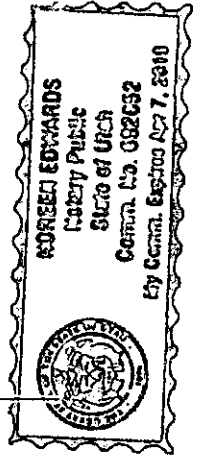 NOREEN EDWARDS
Notary Public
State of Utah
Comm. No. 092C92
My Comm. Expires Apr 7, 2010